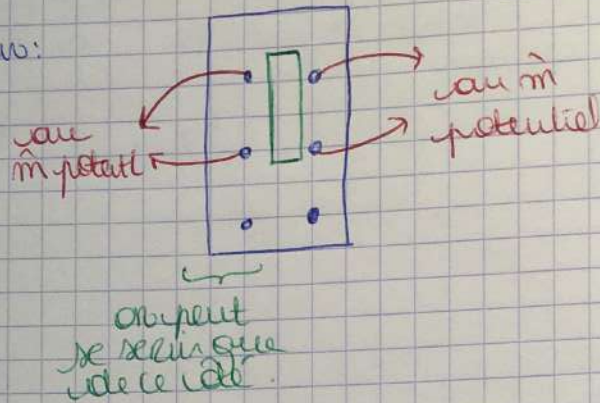 au
m̂ potetl
au m̂
potentiel
on peut
se servir que
de ce côté.